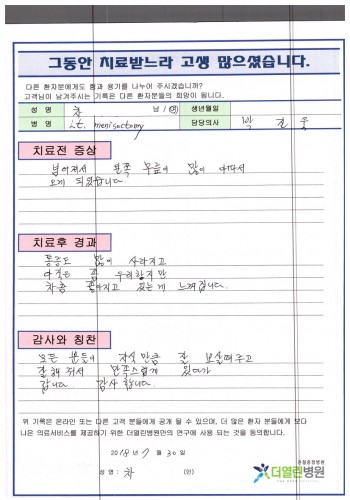 그동안 치료받느라 고생 많으셨습니다.
다른 환자분에게도 힘과 용기를 나누어 주시겠습니까?
고객님이 남겨주시는 기록은 다른 환자분들의 희망이 됩니다.
성 명 차 님 / 생년월일
병 명 Lt. meniscectomy 담당의사 박
치료전 증상
넘어져서 왼쪽 무릎이 많이 아파서
오게 되었습니다.
치료후 경과
통증도 많이 사라지고
아직은 좀 우리하지만
차츰 좋아지고 있는게 느껴집니다.
감사와 칭찬
모든 분들이 자식만큼 잘 보살펴주고
잘해줘서 만족스럽게 있다가
갑니다. 감사합니다.
위 기록은 온라인 또는 다른 고객 분들에게 공개 될 수 있으며, 더 많은 환자 분들에게 보다
나은 의료서비스를 제공하기 위한 더열린병원만의 연구에 사용 되는 것을 동의합니다.
2018년 7월 30일
성명 : 차 (인)
관절중점병원
더열린병원